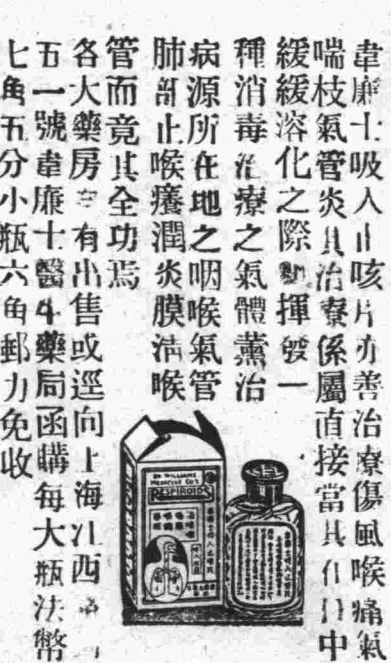 韋廉士吸入止咳片亦善治療傷風喉痛氣
喘枝氣管炎其治療係屬直接當其在口中
緩緩溶化之際揮發一
種消毒治療之氣體薰治
病源所在地之咽喉氣管
肺部止喉癢潤炎膜清喉
管而竟其全功焉
各大藥房均有出售或逕向上海江西路
五一號韋廉士醫生藥局函購每大瓶法幣
七角五分小瓶六角郵力免收
DR WILLIAMS
MEDICINE CO'S
RESPIROIDS